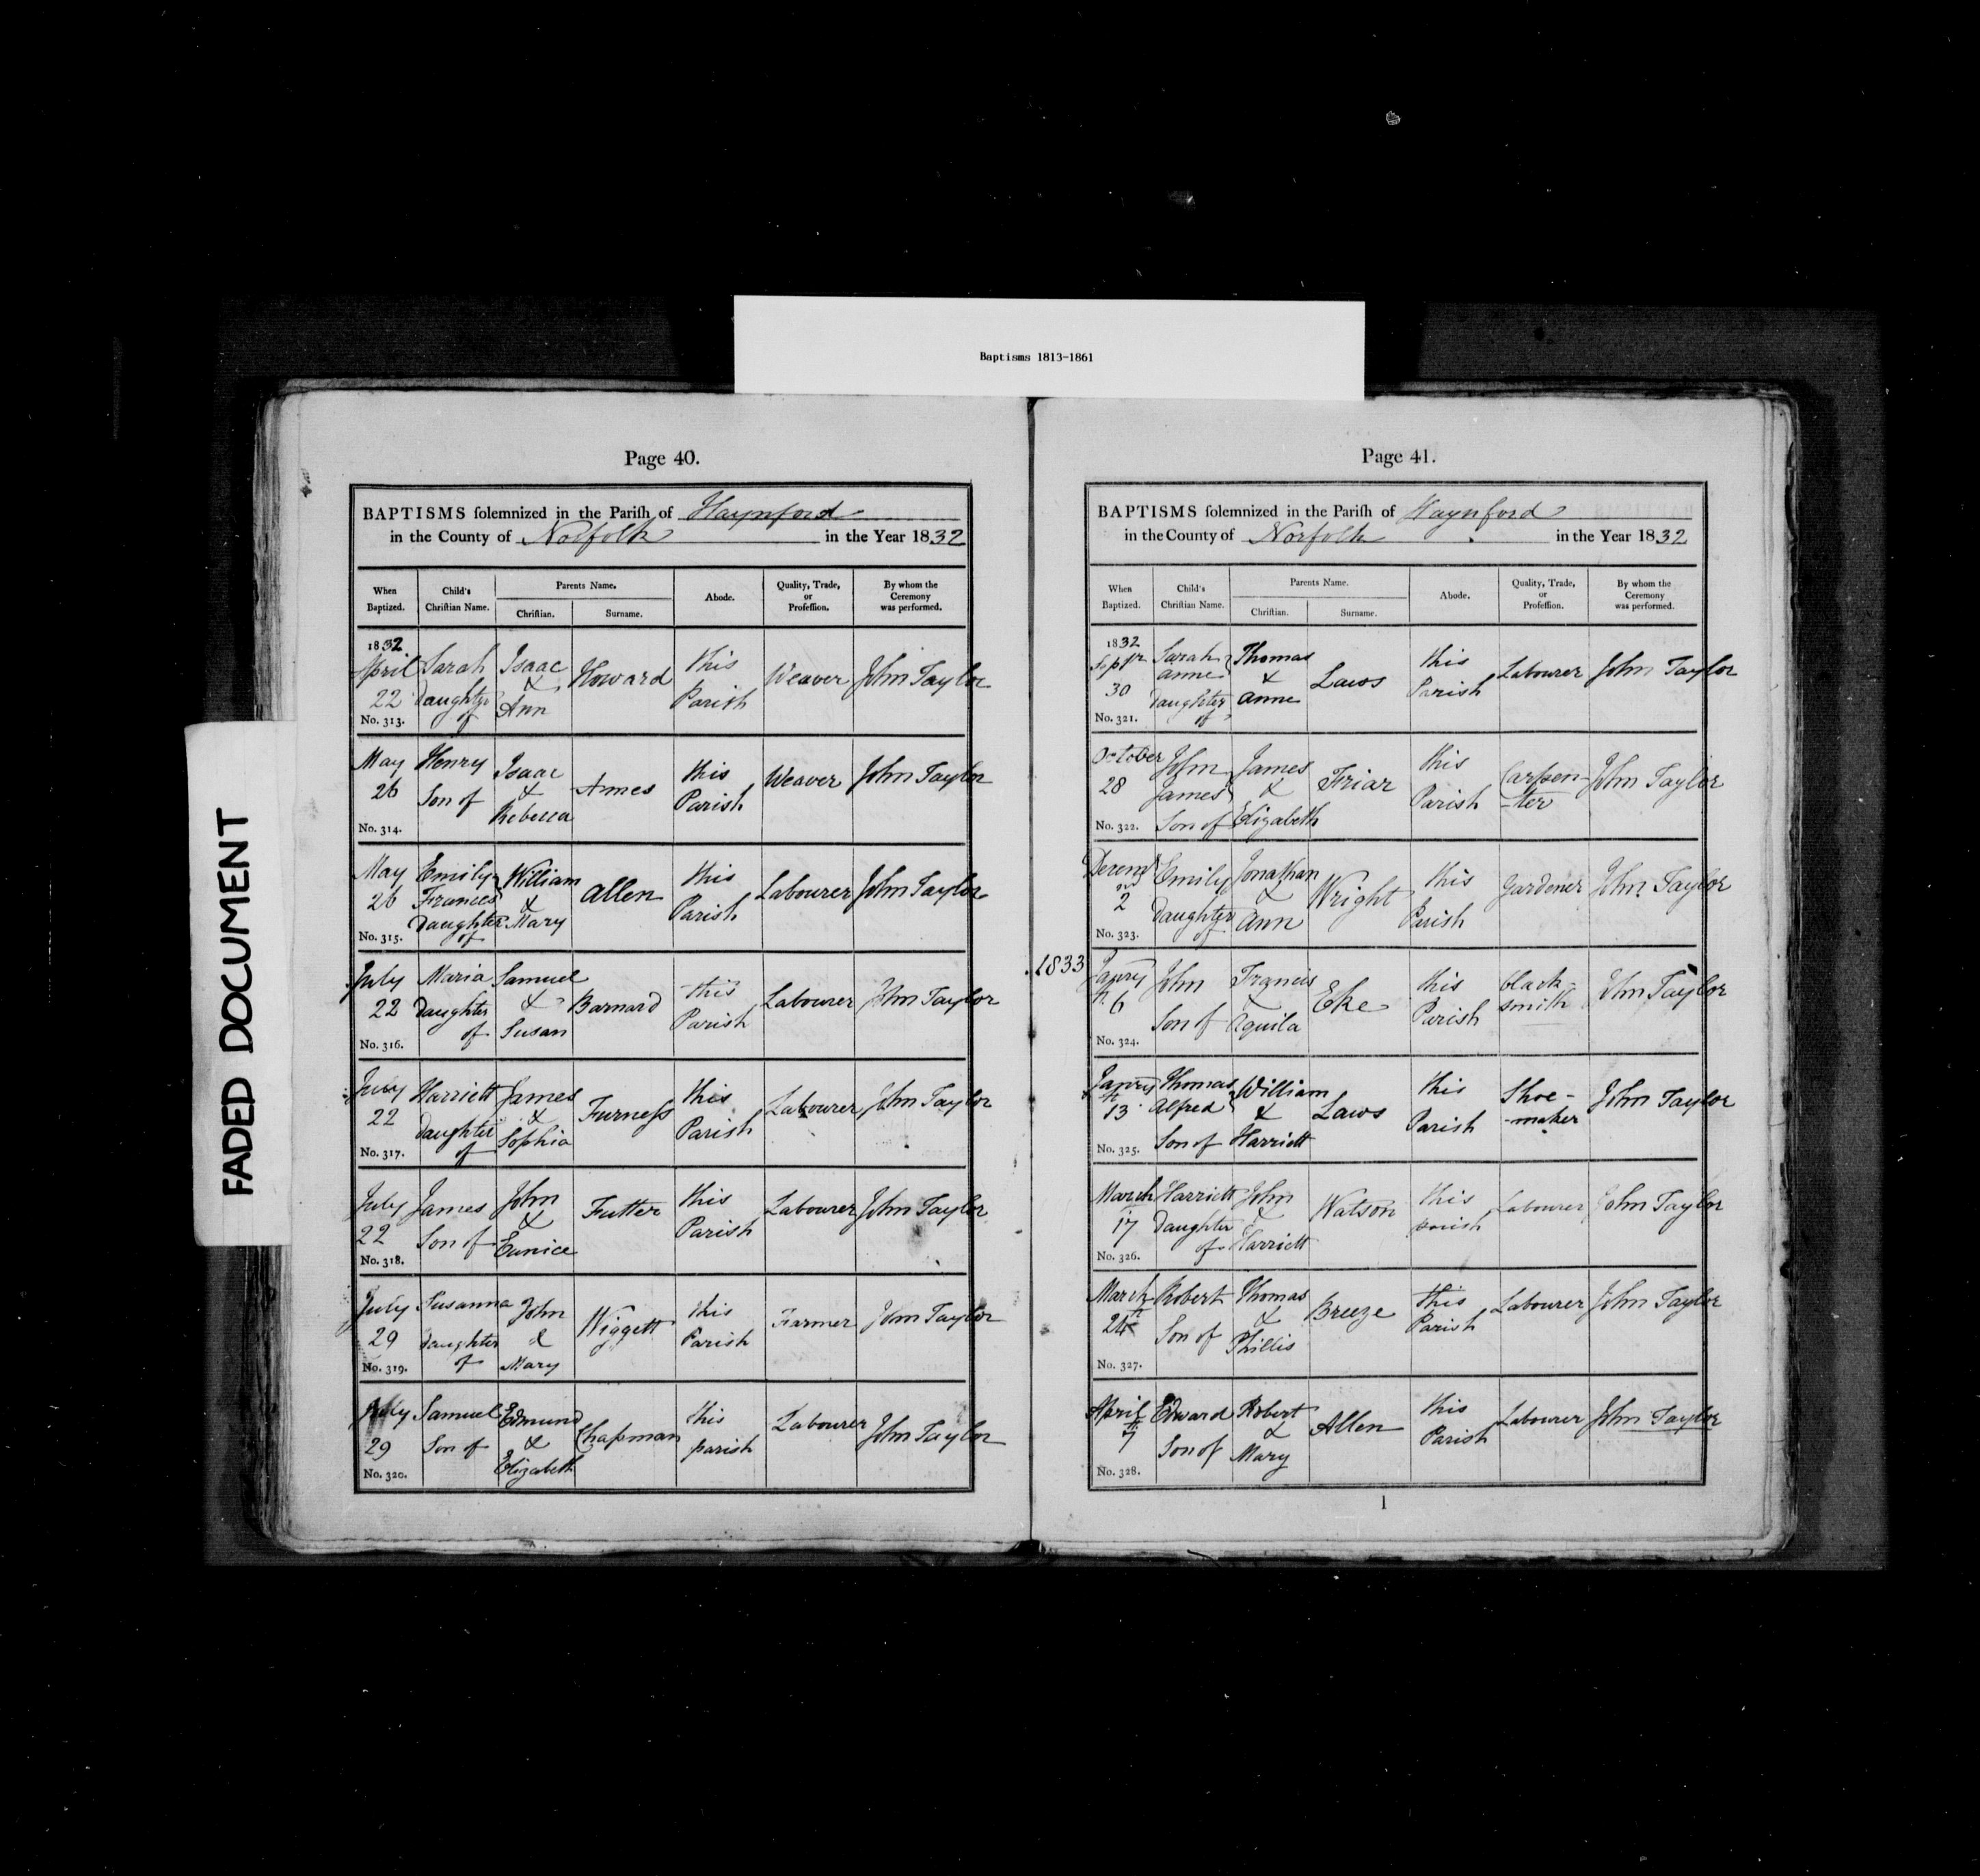 Baptisms 1813-1861
FADED DOCUMENT
Page 40.
BAPTISMS ſolemnized in the Pariſh of Haynford
in the County of Norfolk in the Year 1832
When Baptized. Child's Chriſtian Name. Parents Name. Chriſtian. Surname. Abode. Quality, Trade, or Profeſſion. By whom the Ceremony was performed.
1832
April 22 Sarah Daughter of Isaac & Ann Howard this Parish Weaver John Taylor
No. 313.
May 26 Henry Son of Isaac & Rebecca Armes this Parish Weaver John Taylor
No. 314.
May 26 Emily Frances Daughter of William & Mary Allen this Parish Labourer John Taylor
No. 315.
July 22 Maria Daughter of Samuel & Susan Barnard this Parish Labourer John Taylor
No. 316.
July 22 Harriett Daughter of James & Sophia Furneſs this Parish Labourer John Taylor
No. 317.
July 22 James Son of John & Eunice Futter this Parish Labourer John Taylor
No. 318.
July 29 Susanna Daughter of John & Mary Wiggett this Parish Farmer John Taylor
No. 319.
July 29 Samuel Son of Edmund & Elizabeth Chapman this parish Labourer John Taylor
No. 320.
Page 41.
BAPTISMS ſolemnized in the Pariſh of Haynford
in the County of Norfolk in the Year 1832
When Baptized. Child's Chriſtian Name. Parents Name. Chriſtian. Surname. Abode. Quality, Trade, or Profeſſion. By whom the Ceremony was performed.
1832
30 Sarah anne Daughter of Thomas & anne Laws this Parish Labourer John Taylor
No. 321.
October 28 John James Son of James & Elizabeth Friar this Parish Carpen-ter John Taylor
No. 322.
2 Emily Daughter of Jonathan & Ann Wright this Parish gardener John Taylor
No. 323.
1833
Janry 6 John Son of Francis & Aquila Eke this Parish black-smith John Taylor
No. 324.
Janry 13 Thomas Alfred Son of William & Harriett Laws this Parish Shoe-maker John Taylor
No. 325.
March 17 Harriett Daughter of John & Harriett Watson this parish Labourer John Taylor
No. 326.
March 24 Robert Son of Thomas & Phillis Breeze this Parish Labourer John Taylor
No. 327.
April 7 Edward Son of Robert & Mary Allen this Parish Labourer John Taylor
No. 328.
1